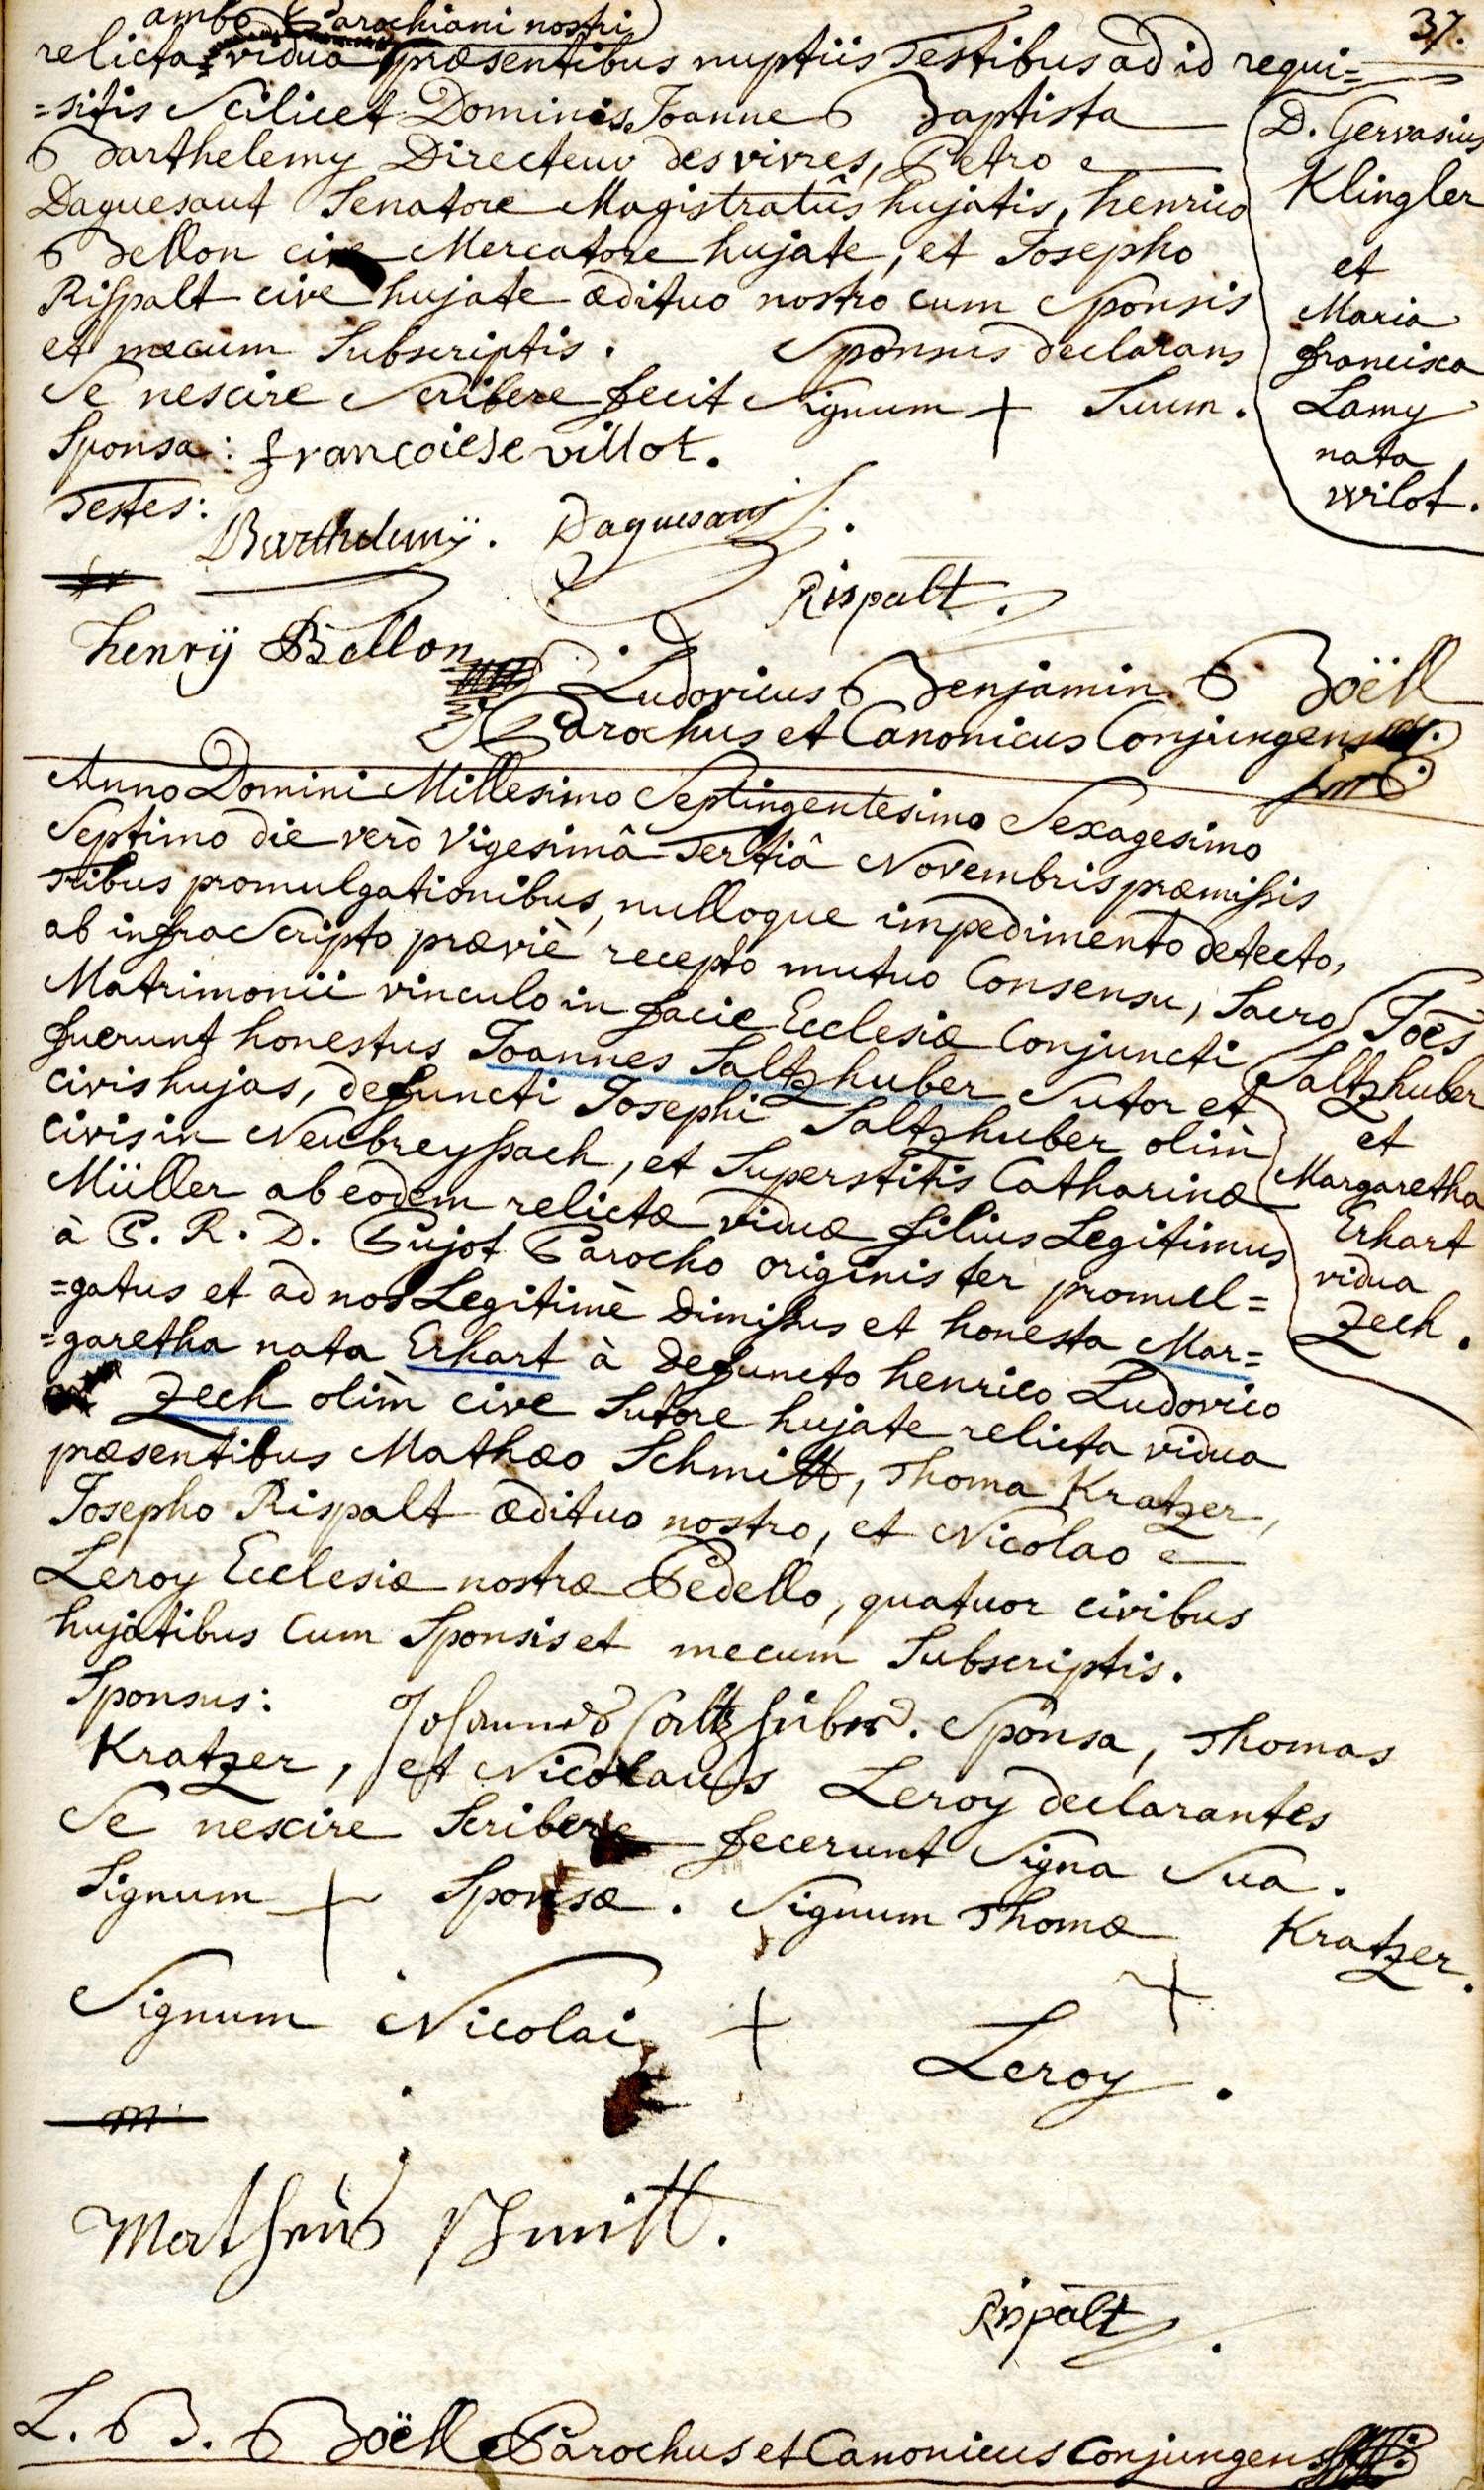 37.
ambo Parochiani nostri
relicta vidua præsentibus nuptiis Testibus ad id requi=
=sitis Scilicet Dominis Joanne Baptista
Barthelemy Directeur des vivres, Petro
Daguesaut Senatore Magistratûs hujatis, henrico
Bellon cive Mercatore hujate, et Josepho
Rispalt cive hujate ædituo nostro cum Sponsis
et mecum Subscriptis. Sponsus declarans
Se nescire Scribere fecit Signum + Suum.
Sponsa: françoiese villot.
Testes:
Barthelemÿ. Daguesaut.
Rispalt.
henrÿ Bellon
Ludovicus Benjamin Boëll
Parochus et Canonicus Conjungens
D. Gervasius
Klingler
et
Maria
francisca
Lamy
nata
wilot.
Anno Domini Millesimo Septingentesimo Sexagesimo
Septimo die verò Vigesimâ Tertiâ Novembris præmissis
Tribus promulgationibus, nulloque impedimento detecto,
ab infra Scripto præviè recepto mutuo Consensu, Sacro
Matrimonii vinculo in facie Ecclesiæ Conjuncti
fuerunt honestus Joannes Saltzhuber Sutor et
civis hujas, defuncti Josephi Saltzhuber olim
civis in Neubreyssach, et Superstitis Catharinæ
Müller ab eodem relictæ viduæ filius Legitimus
à P. R. D. Pujot Parocho originis ter promul=
=gatus et ad nos Legitimè dimissus et honesta Mar=
=garetha nata Erhart à defuncto henrico Ludovico
Zech olìm cive Sutore hujate relicta vidua
præsentibus Mathæo Schmitt, Thoma Kratzer,
Josepho Rispalt ædituo nostro, et Nicolao
Leroy Ecclesiæ nostræ Pedello, quatuor civibus
hujatibus Cum Sponsis et mecum Subscriptis.
Joēs
Saltzhuber
et
Margaretha
Erhart
vidua
Zech.
Sponsus: Johannes Saltzhuber. Sponsa, Thomas
Kratzer, et Nicolaus Leroy declarantes
Se nescire Scribere fecerunt Signa Sua.
Signum + Sponsæ. Signum Thomæ + Kratzer.
Signum Nicolai + Leroy.
Matheus Schmitt.
Rispalt.
L. B. Boëll Parochus et Canonicus Conjungens